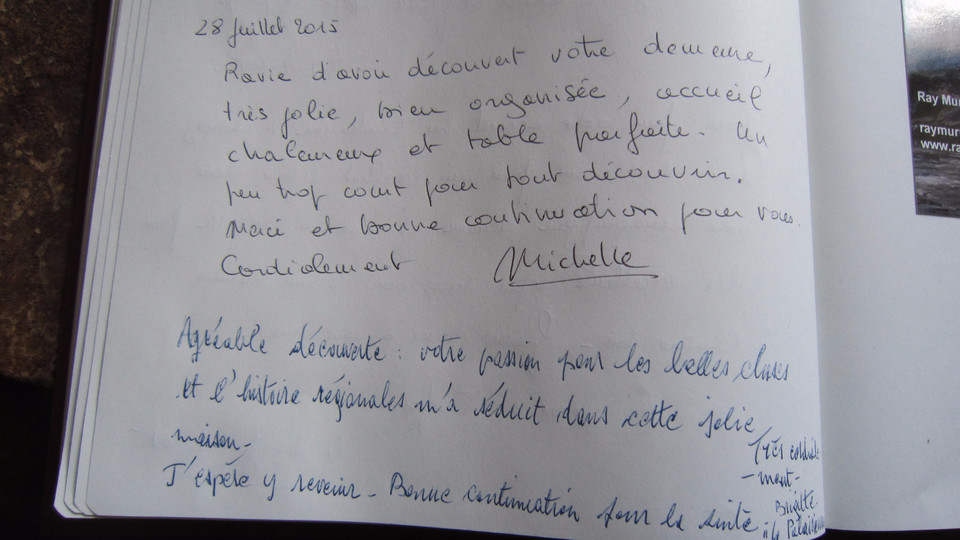 28 Juillet 2015
Ravie d'avoir découvert votre domaine,
très jolie, bien organisée, accueil
chaleureux et table parfaite. Un
peu trop court pour tout découvrir.
Merci et bonne continuation pour vous.
Cordialement Michelle
Agréable découverte : votre passion pour les belles choses
et l'histoire régionales m'a séduit dans cette jolie
maison.
J'espère y revenir. Bonne continuation pour la suite
Très cordiale
-ment-
Brigitte
Ray Mur
raymur
www.ra